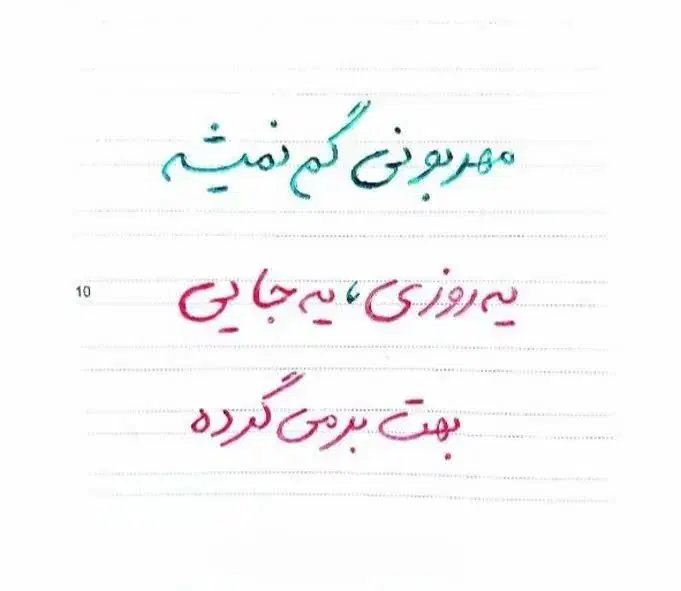 مهربونی گم نمیشه
10 یه روزی، یه جایی
بهت برمی گرده